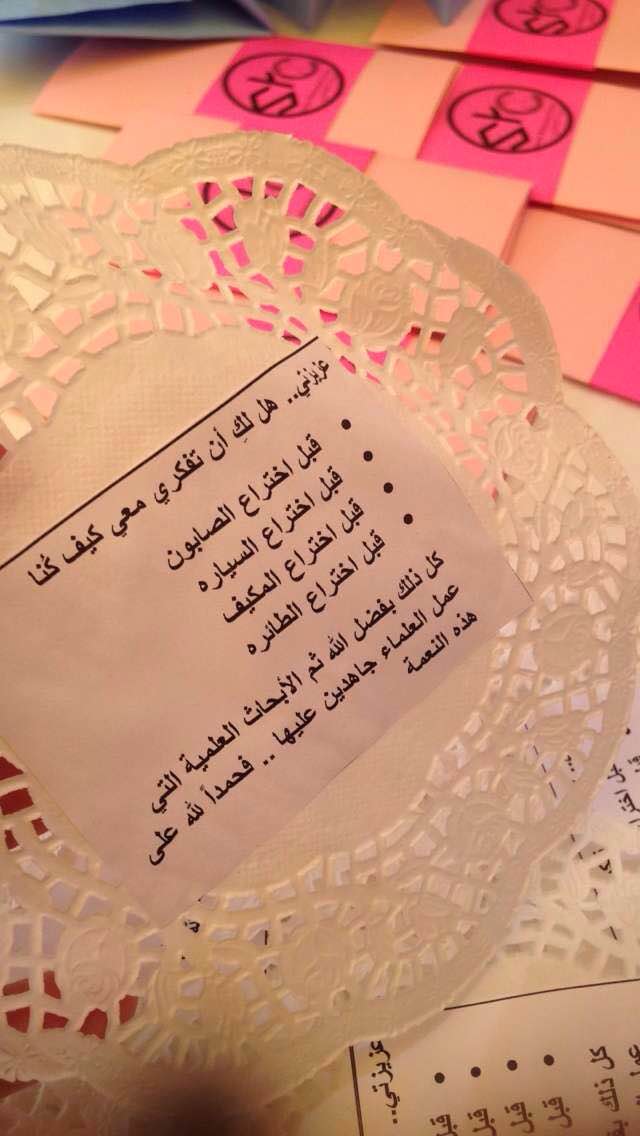 عزيزتي.. هل لكِ أن تفكري معي كيف كُنا
• قبل اختراع الصابون
• قبل اختراع السياره
• قبل اختراع المكيف
• قبل اختراع الطائره
كل ذلك بفضل الله ثم الأبحاث العلمية التي
عمل العلماء جاهدين عليها .. فحمداً لله على
هذه النعمة
عزيزتي..
• قبل
• قبل
• قبل
• قبل
كل ذلك